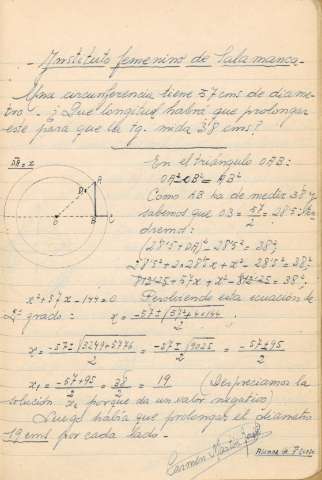 Instituto femenino de Salamanca.-
Una circunferencia tiene 57 cms de diame-
tro.- ¿Que longitud habrá que prolongar
este para que la tg. mida 38 cms?
DA = x
En el triángulo OAB:
Como AB ha de medir 38 y
sabemos que OB = 57/2 = 28'5 
dremos:
(28'5+DA)² - 28'5² = 38²
28'5² + 2×28'5x + x² - 28'5² = 38²
812'25 + 57x + x² - 812'25 = 38²,
x² + 57x - 1444 = 0 Resolviendo esta ecuación de
2º grado: x = -57 ± √57² + 4×1444 / 2 .
x = -57 ± √3249 + 5776 / 2 = -57 ± √9025 / 2 = -57 ± 95 / 2
x₁ = -57 + 95 / 2 = 38 / 2 = 19 (Despreciamos la
solución x₂ porque da un valor negativo)
Luego habría que prolongar el diametro
19 cms por cada lado.-
Carmen Martín
Alumna de 3º curso
A
D
O
B
C